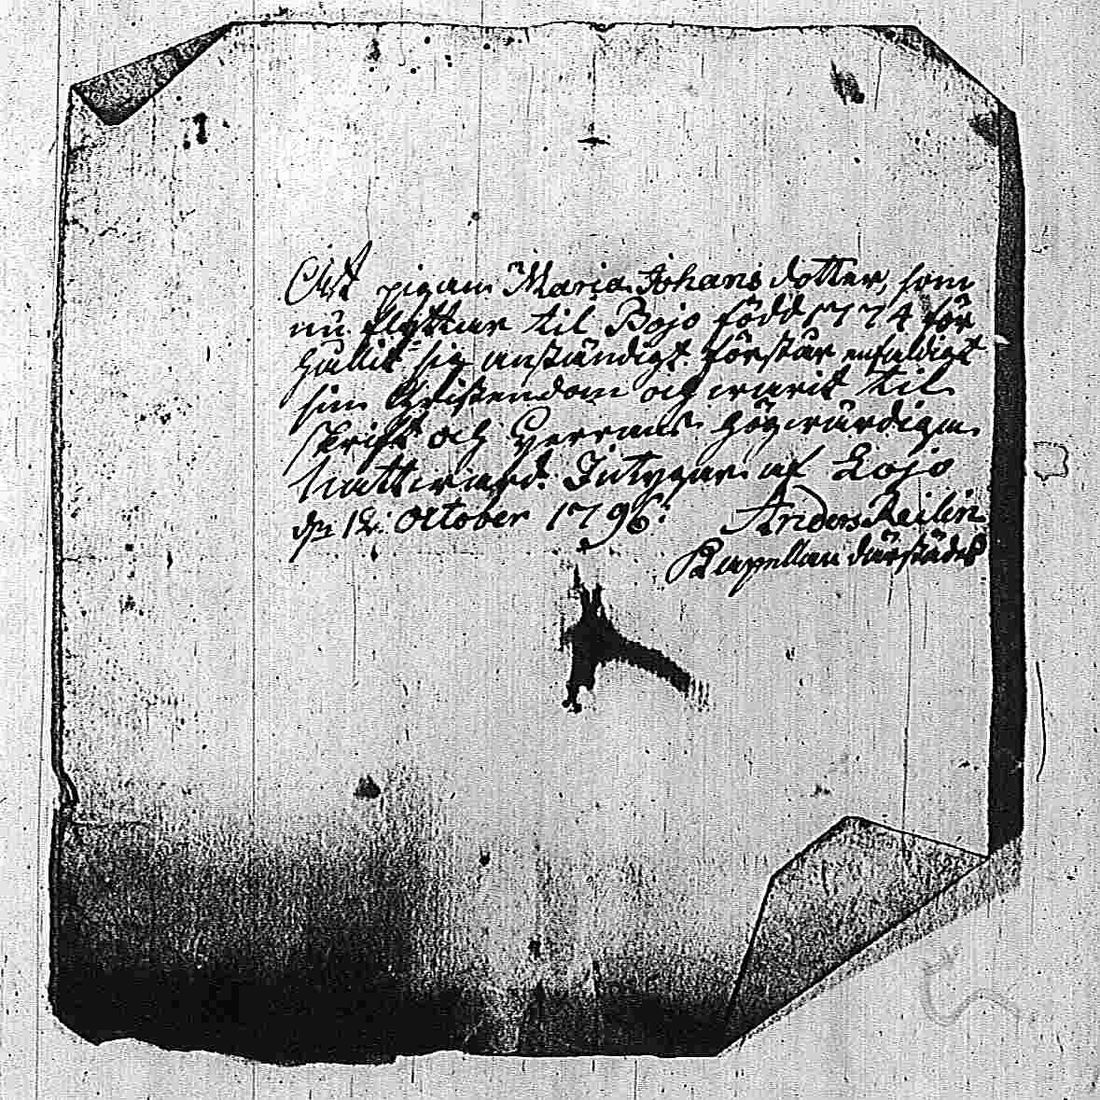 At pigan Maria Johans dotter, som
nu flyttar til Bojo född 1774 för
hållit sig anständigt förstår enfaldigt
sin Kristendom och warit til
skrift och Herrans högwürdiga
nattward. Intygar af Lojo
den 12. October 1796. Anders Reilin
Kapellan därstädes